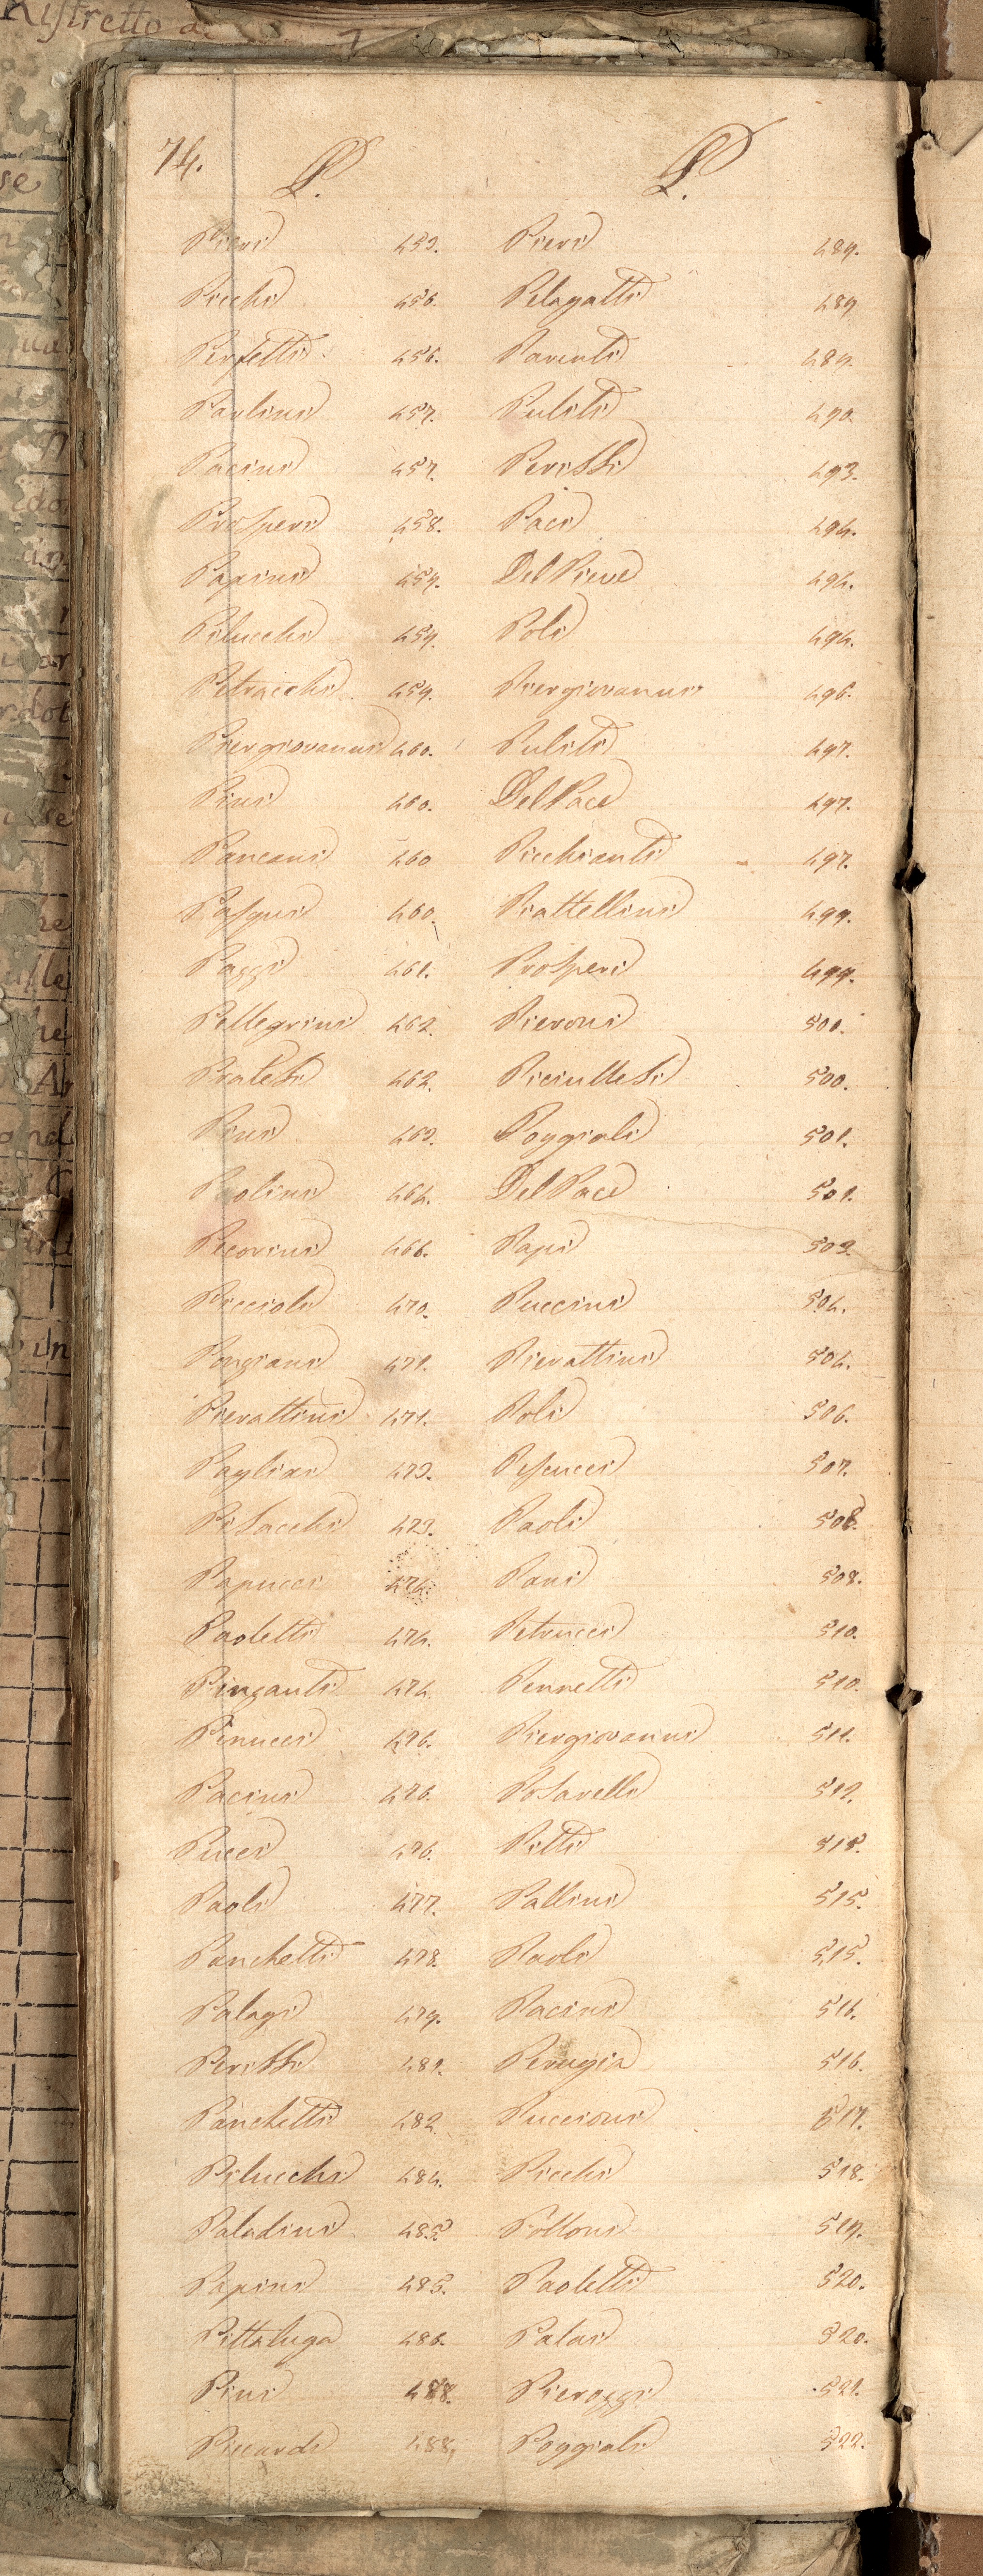 Ristretto di
74.
P. P.
Pieri 453. Pieri 489.
Picchi 456. Pelagatti 489
Perfetti 456. Parenti 489.
Paolini 457. Puliti 490.
Pacini 457. Perissi 493.
Prosperi 458. Paci 494.
Papini 459. Del Pieve 494.
Pilucchi 459. Poli 494.
Petracchi 459. Piergiovanni 496.
Piergiovanni 460. Puliti 497.
Pini 460. Del Pace 497.
Pancani 460 Picchianti 497.
Pasqui 460. Piattellini 499.
Paggi 461. Prosperi 499.
Pellegrini 462. Pieroni 500.
Pratesi 462. Piciullesi 500.
Pini 463. Poggiali 501.
Paolini 464. Del Pace 501.
Pecorini 466. Papi 503.
Piccioli 470. Puccini 504.
Pongiani 471. Pierattini 504.
Pierattini 471. Poli 506.
Pagliai 473. Pescucci 507.
Pesacchi 473. Paoli 508.
Papucci 474. Pani 508.
Paoletti 474. Petrucci 510.
Pinzauti 474. Pennetti 510.
Pinucci 476. Piergiovanni 511.
Pacini 476. Posarelli 512.
Pucci 476. Pitti 515.
Paoli 477. Pallini 515.
Panchetti 478. Paoli 515.
Palagi 479. Pacini 516.
Perissi 481. Perugia 516.
Panchetti 482. Puccioni 517.
Pilucchi 484. Picchi 518.
Paladini 485. Polloni 519.
Papini 485. Paoletti 520.
Pittaluga 486. Palai 520.
Pini 488. Pierozzi 521.
Piccardi 488. Poggiali 522.